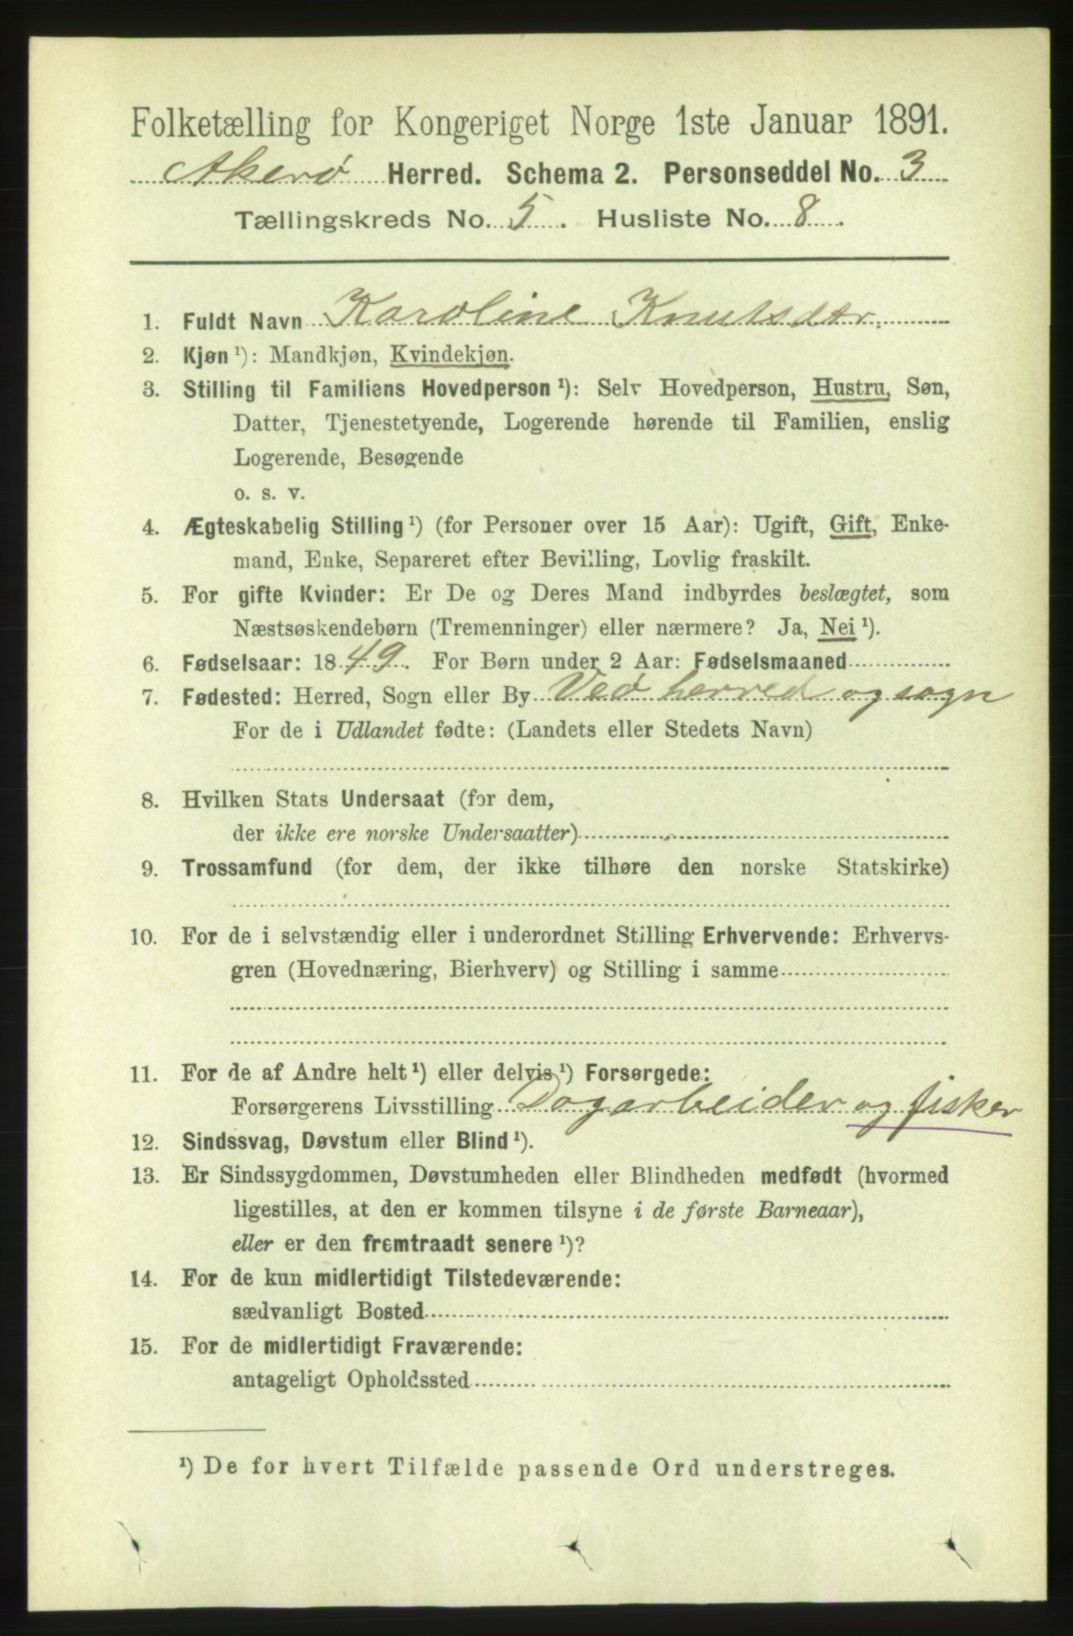 Folketælling for Kongeriget Norge 1ste Januar 1891.
Akerø Herred. Schema 2. Personseddel No. 3
Tællingskreds No. 5. Husliste No. 8.
1. Fuldt Navn Karoline Knutsdtr.
2. Kjøn ¹): Mandkjøn, Kvindekjøn.
3. Stilling til Familiens Hovedperson ¹): Selv Hovedperson, Hustru, Søn,
Datter, Tjenestetyende, Logerende hørende til Familien, enslig
Logerende, Besøgende
o. s. v.
4. Ægteskabelig Stilling ¹) (for Personer over 15 Aar): Ugift, Gift, Enke-
mand, Enke, Separeret efter Bevilling, Lovlig fraskilt.
5. For gifte Kvinder: Er De og Deres Mand indbyrdes beslægtet, som
Næstsøskendebørn (Tremenninger) eller nærmere? Ja, Nei ¹).
6. Fødselsaar: 1849. For Børn under 2 Aar: Fødselsmaaned
7. Fødested: Herred, Sogn eller By Veø herred og sogn
For de i Udlandet fødte: (Landets eller Stedets Navn)
8. Hvilken Stats Undersaat (for dem,
der ikke ere norske Undersaatter)
9. Trossamfund (for dem, der ikke tilhøre den norske Statskirke)
10. For de i selvstændig eller i underordnet Stilling Erhvervende: Erhvervs-
gren (Hovednæring, Bierhverv) og Stilling i samme
11. For de af Andre helt ¹) eller delvis ¹) Forsørgede:
Forsørgerens Livsstilling Dagarbeider og fisker
12. Sindssvag, Døvstum eller Blind ¹).
13. Er Sindssygdommen, Døvstumheden eller Blindheden medfødt (hvormed
ligestilles, at den er kommen tilsyne i de første Barneaar),
eller er den fremtraadt senere ¹)?
14. For de kun midlertidigt Tilstedeværende:
sædvanligt Bosted
15. For de midlertidigt Fraværende:
antageligt Opholdssted
¹) De for hvert Tilfælde passende Ord understreges.